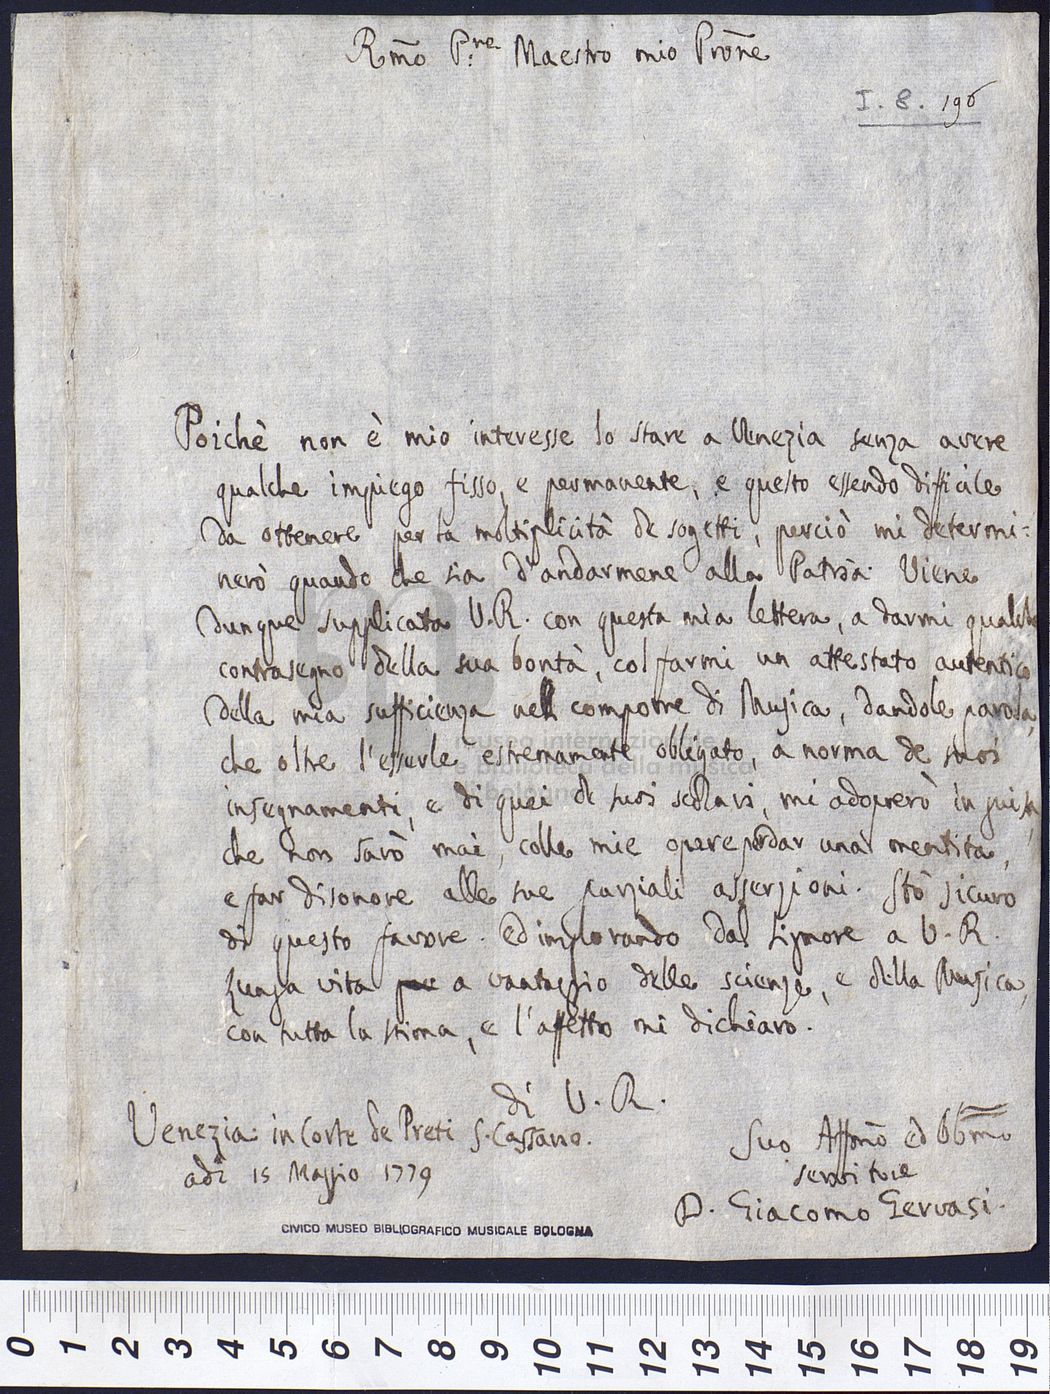 Rm̃o P.re Maestro mio Prõne
I. 8. 196
Poichè non è mio interesse lo stare a Venezia senza avere
qualche impiego fisso, e permanente, e questo essendo difficile
da ottenere per la moltiplicità de sogetti, perciò mi determi:
nerò quando che sia d'andarmene alla Patria. Viene
dunque supplicata V.R. con questa mia lettera, a darmi qualche
contrasegno della sua bontà, col farmi un attestato autentico
della mia sufficienza nell comporre di Musica, dandole parola,
che oltre l'esserle estremamente obligato, a norma de suoi
insegnamenti, e di quei de suoi scolari, mi adoprerò in guisa,
che non sarò mai, colle mie opere per dar una mentita,
e far disonore alle sue parziali asserzioni. Stò sicuro
di questo favore. Ed implorando dal Signore a V.R.
lunga vita a vantaggio delle scienze, e della Musica,
con tutta la stima, e l'affetto mi dichiaro.
di V.R.
Venezia in Corte de Preti S. Cassano.
adì 15 Maggio 1779
Suo Affmõ ed Obbmõ
servitore
D. Giacomo Gervasi.
CIVICO MUSEO BIBLIOGRAFICO MUSICALE BOLOGNA
museo internazionale
e biblioteca della musica
di bologna
0 1 2 3 4 5 6 7 8 9 10 11 12 13 14 15 16 17 18 19